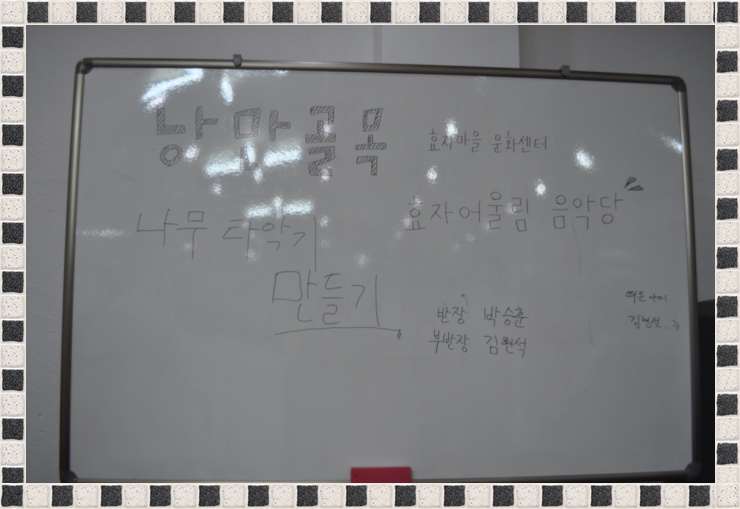 낭만골목
효자마을 문화센터
효자어울림 음악당
나무 타악기
만들기
반장 박승훈
부반장 김현석